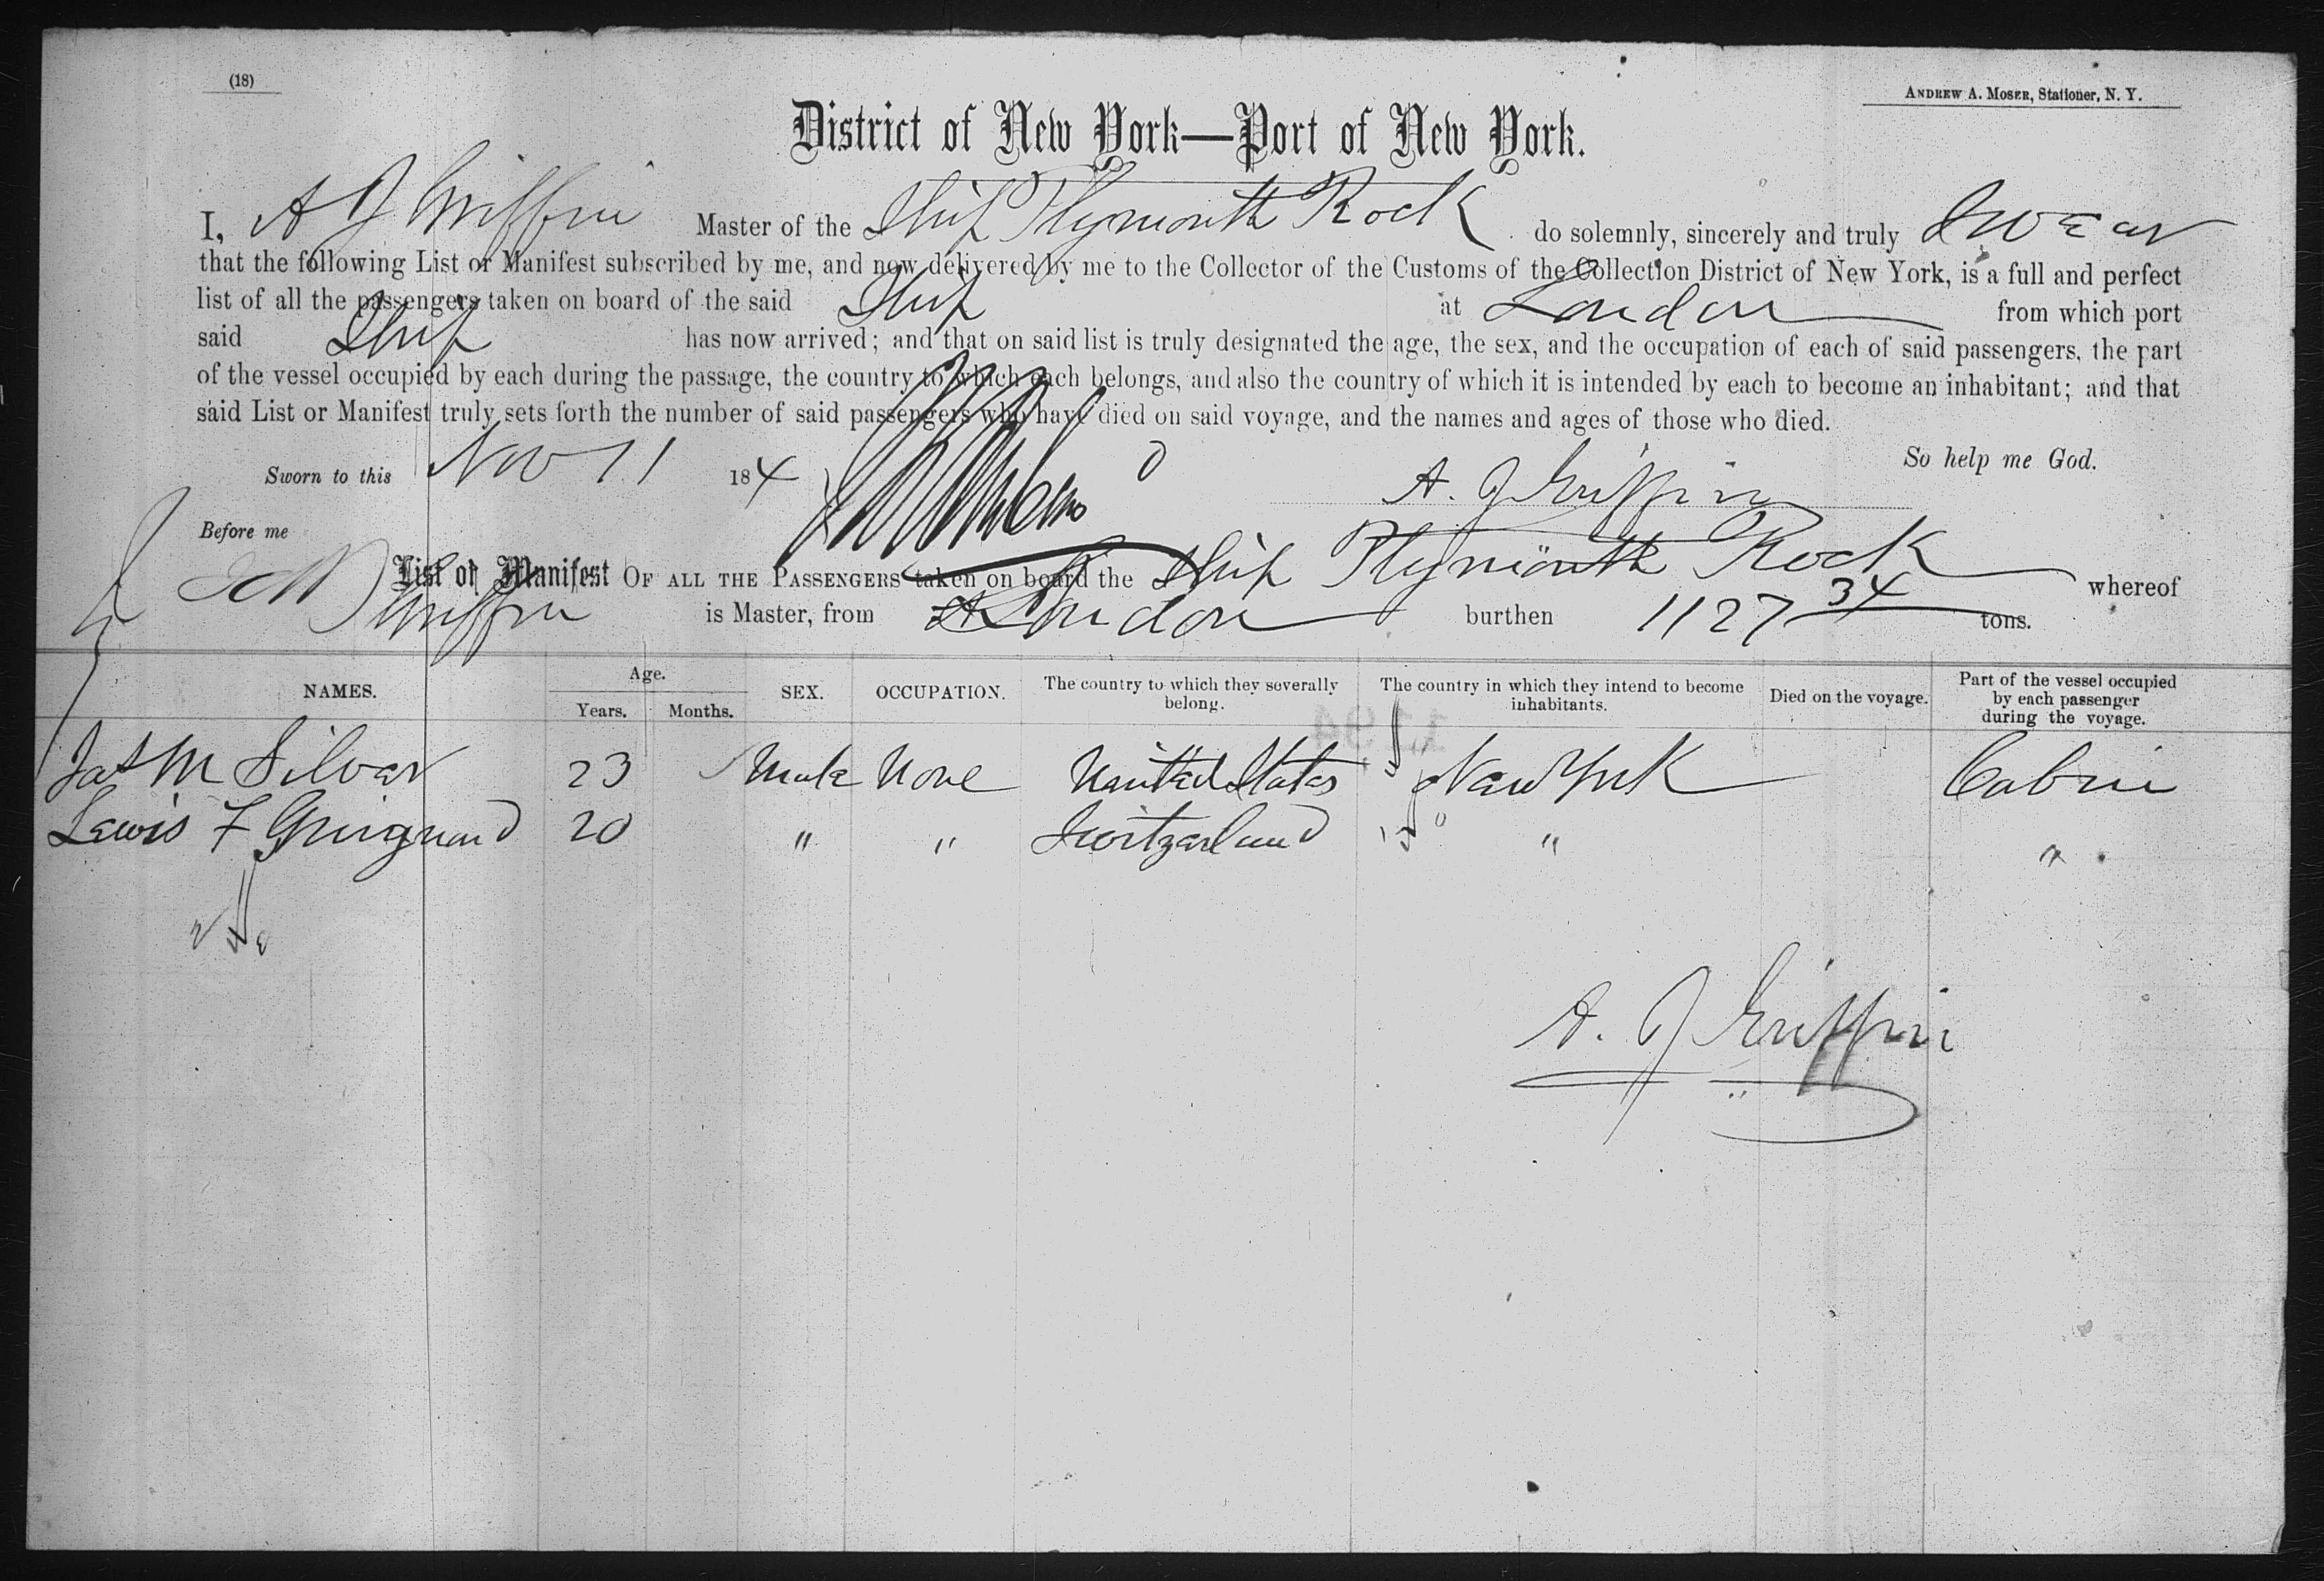 (18)
ANDREW A. MOSER, Stationer, N. Y.
District of New York—Port of New York.
I, A J Griffin Master of the Ship Plymouth Rock do solemnly, sincerely and truly Swear
that the following List or Manifest subscribed by me, and now delivered by me to the Collector of the Customs of the Collection District of New York, is a full and perfect
list of all the passengers taken on board of the said Ship at London from which port
said Ship has now arrived; and that on said list is truly designated the age, the sex, and the occupation of each of said passengers, the part
of the vessel occupied by each during the passage, the country to which each belongs, and also the country of which it is intended by each to become an inhabitant; and that
said List or Manifest truly sets forth the number of said passengers who have died on said voyage, and the names and ages of those who died.
So help me God.
Sworn to this Nov 11 184
A. J Griffin
Before me
List or Manifest OF ALL THE PASSENGERS taken on board the Ship Plymouth Rock whereof
Griffin is Master, from London burthen 1127 34 tons.
NAMES. Age. Years. Months. SEX. OCCUPATION. The country to which they severally belong. The country in which they intend to become inhabitants. Died on the voyage. Part of the vessel occupied by each passenger during the voyage.
Silvar 23 Male None United States New York Cabin
Lewis F Guignand 20 " " Switzerland " " "
A. J Griffin